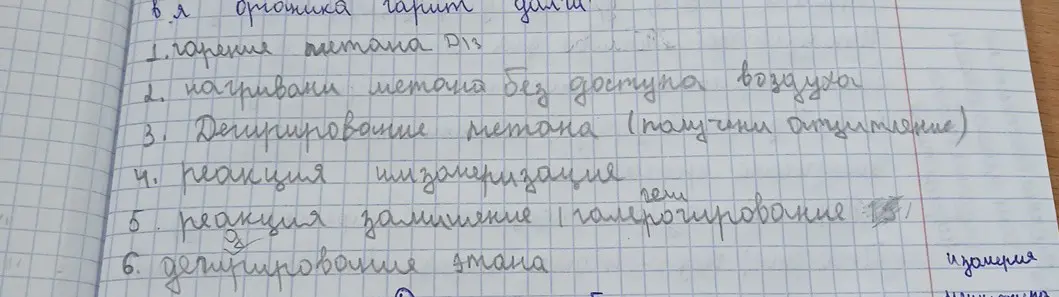 в.я органика гарит
1. гарение метана
2. нагривани метана без доступа воздуха
3. Дегидрирование метана (палучини ацитиление)
4. реакция изамеризация
5. реакция замишение (галерогирование
ген
6. дегидрирования этана
изамерия